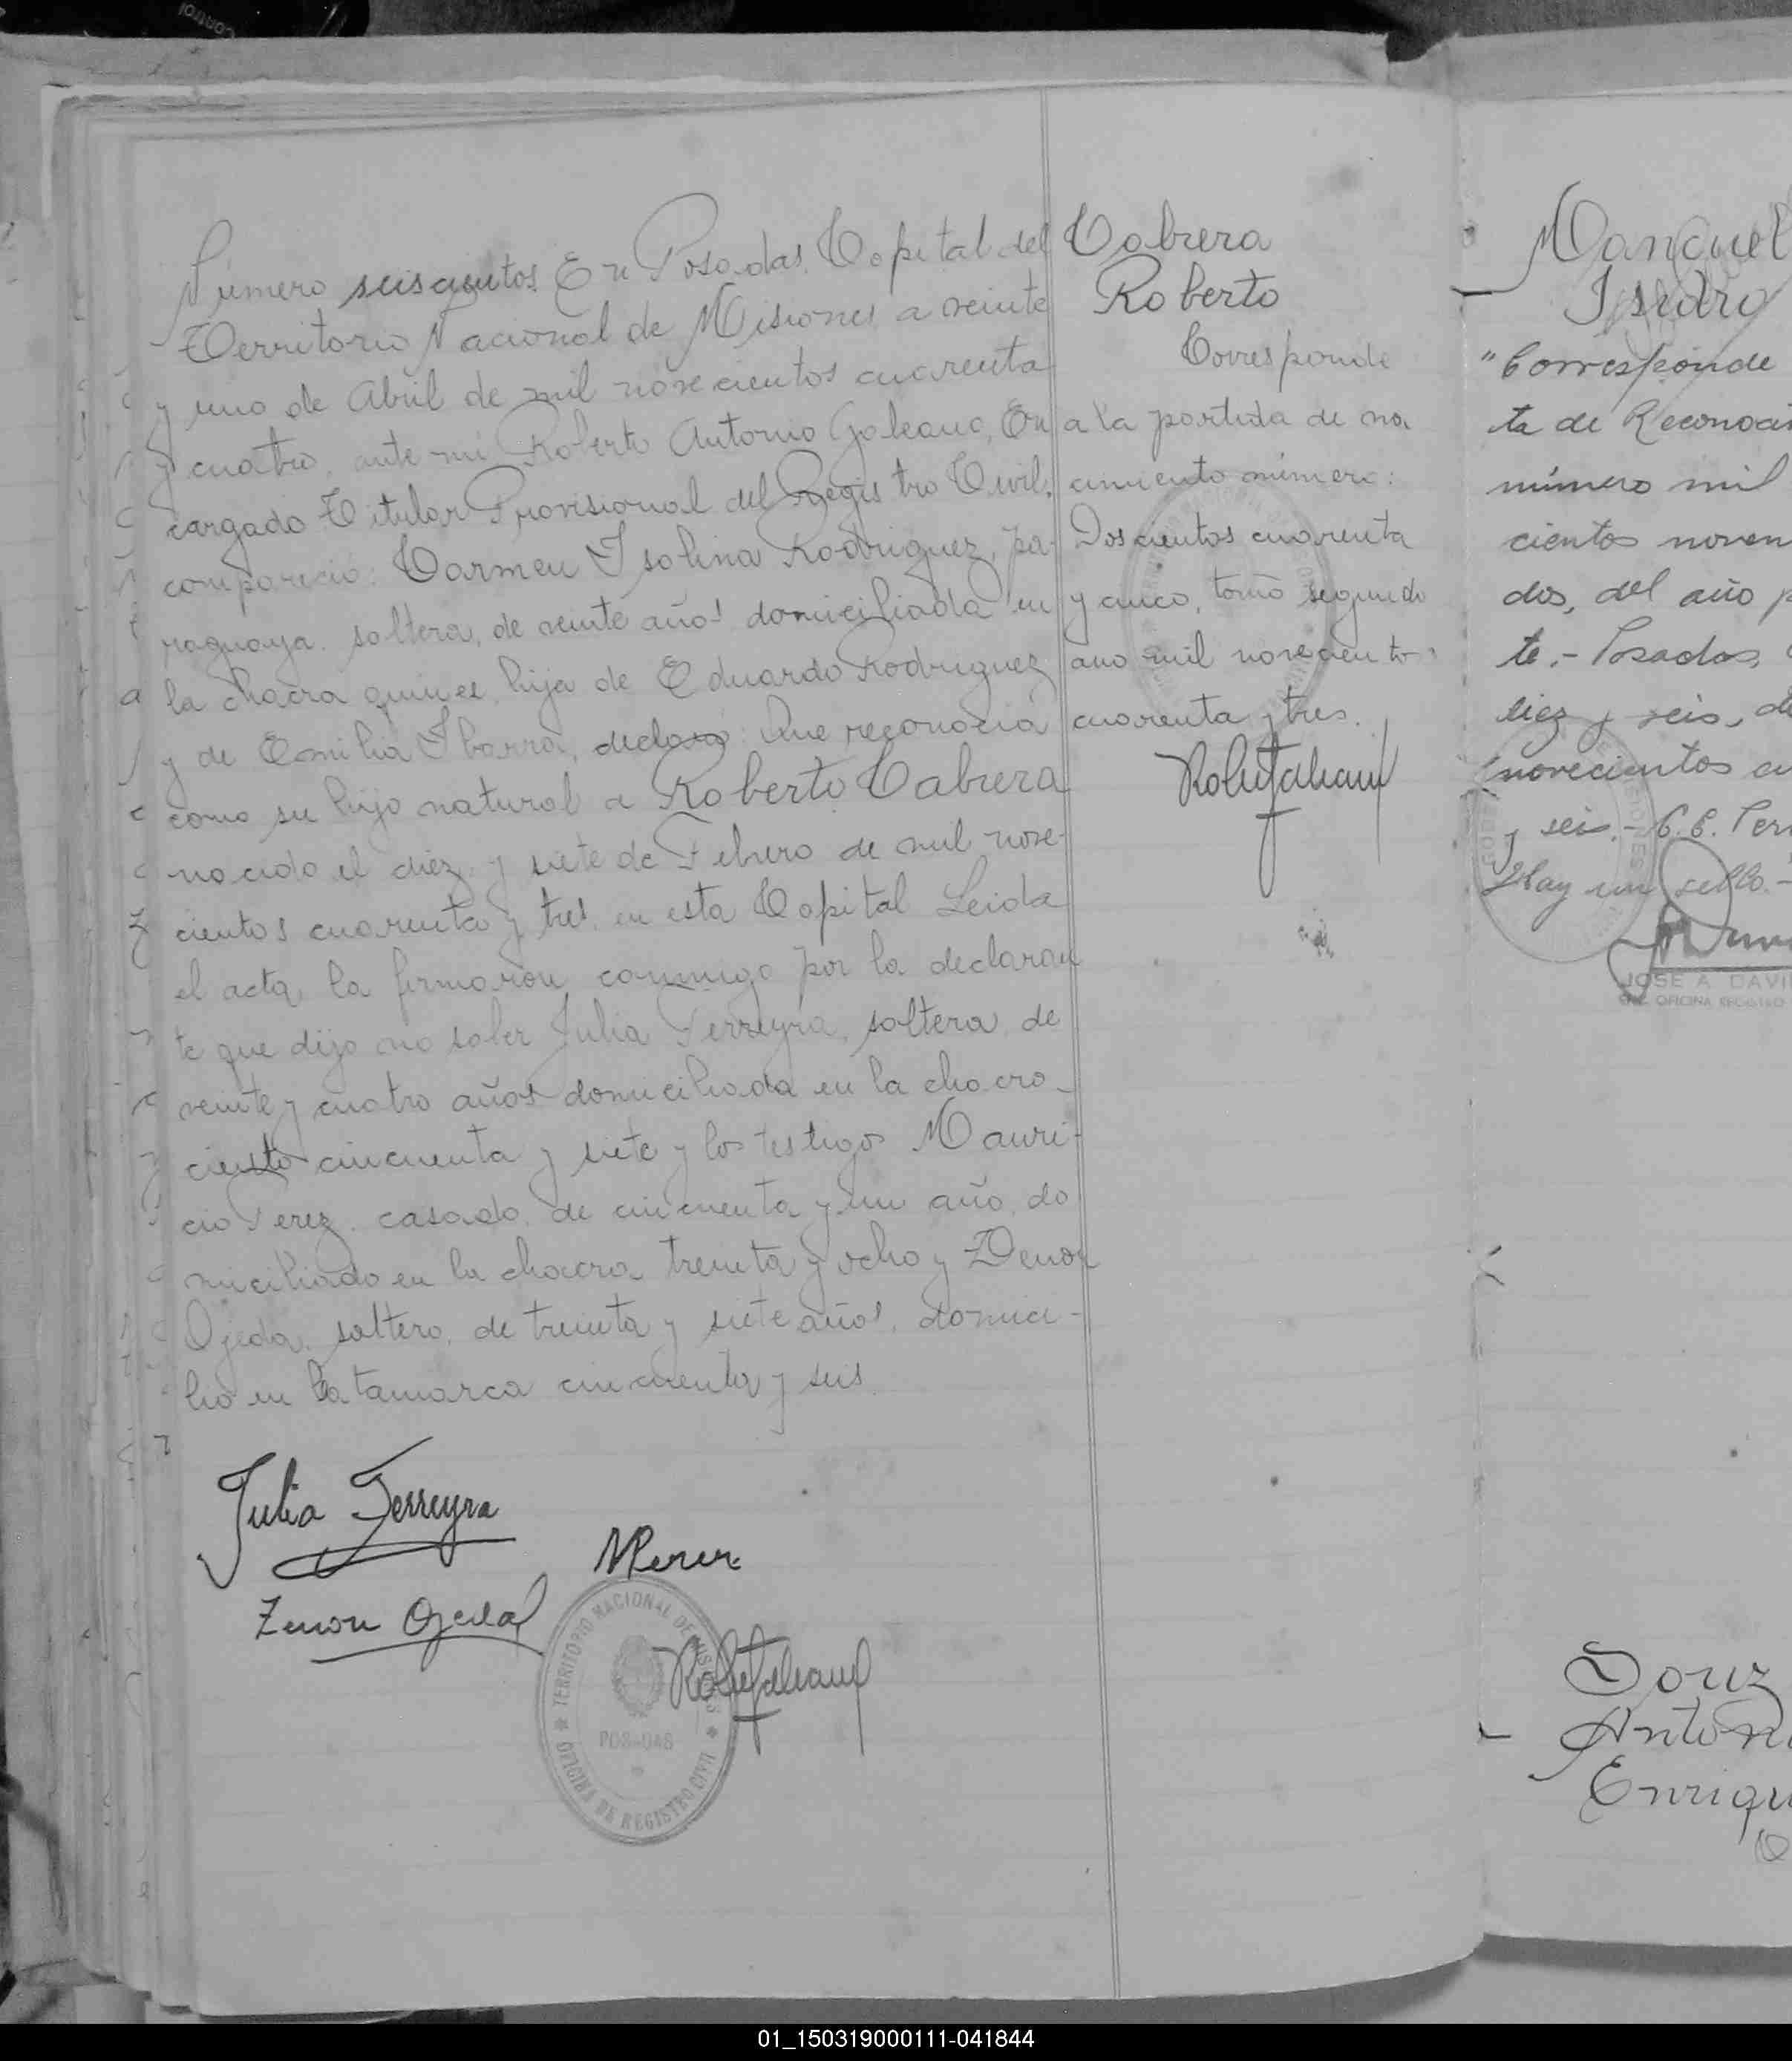 Número seiscientos. En Posadas, Capital del
Territorio Nacional de Misiones a veinte
y uno de Abril de mil novecientos cuarenta
y cuatro, ante mi Roberto Antonio Galeano, En
cargado Titular Provisional del Registro Civil,
compareció: Carmen Isolina Rodriguez, pa-
raguaya, soltera, de veinte años domiciliada en
la chacra quince, hija de Eduardo Rodriguez
y de Emilia Ibarra, declaro: Que reconocia
como su hijo natural a Roberto Cabrera
nacido el diez y siete de Febrero de mil nove-
cientos cuarenta y tres en esta Capital Leida
el acta, la firmaron conmigo por la declaran
te que dijo no saber Julia Ferreyra, soltera de
veinte y cuatro años domiciliada en la chacra
ciento cincuenta y siete y los testigos Mauri-
cio Perez, casado, de cincuenta y un año, do
miciliado en la chacra treinta y ocho y Zenon
Ojeda, soltero, de treinta y siete años, domici-
lio en Catamarca cincuenta y seis.
Julia Ferreyra
MPerez
Zenon Ojeda
TERRITORIO NACIONAL DE MISIONES
POSADAS
OFICINA DE REGISTRO CIVIL
Cabrera
Roberto
Corresponde
a la partida de na
cimiento número:
Doscientos cuarenta
y cinco, tomo segundo
año mil novecientos
cuarenta y tres.
Manuel
Isidro
"Corresponde
ta de Reconoci
número mil
cientos noven
dos, del año p
te.- Posadas,
diez y seis, de
novecientos
y seis.- C.E.
Hay un sello.-
JOSE A DAVI
ENC OFICINA REGISTRO
Antoni
Enriqu
01_150319000111-041844